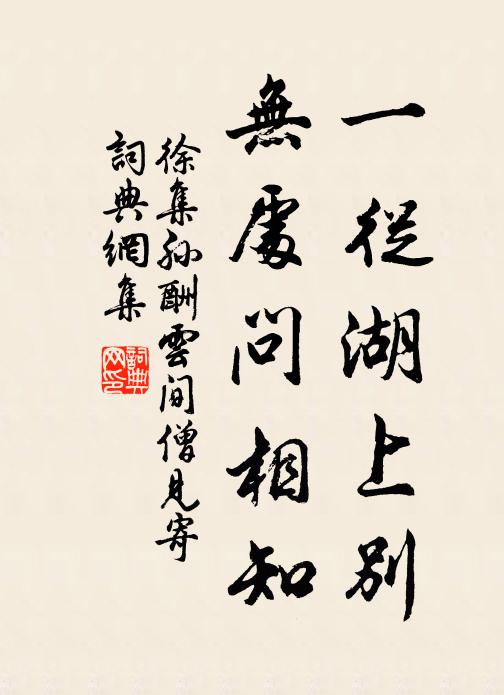 一從湖上別
無處問相知
徐集孙酬雲间僧見寄
詞典網集
詞典网印